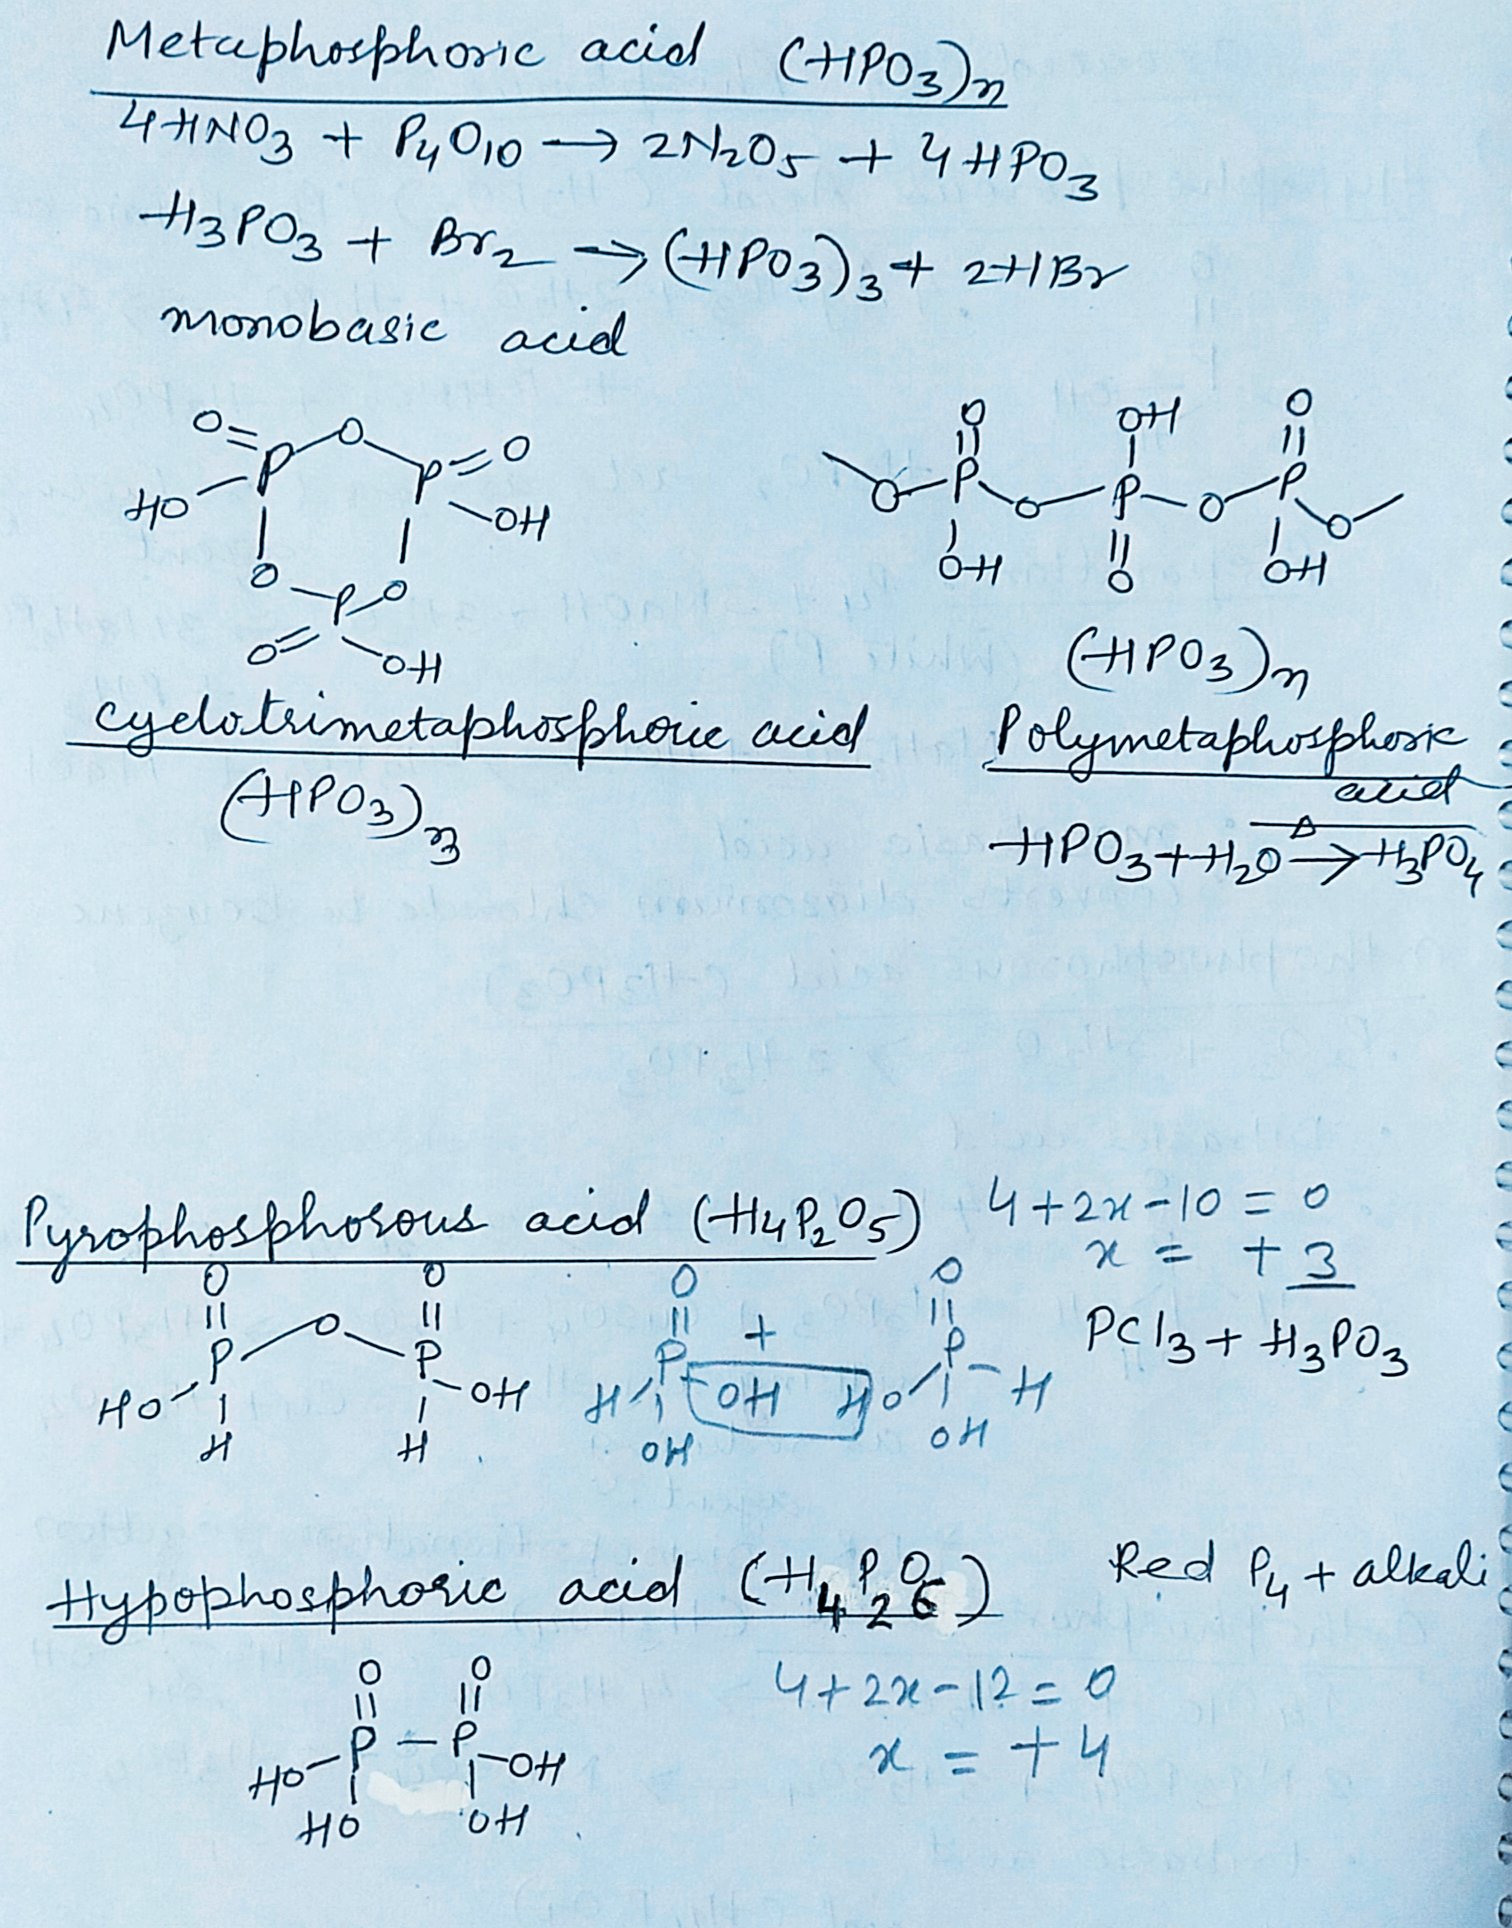 Metaphosphoric acid (HPO₃)n
4HNO₃ + P₄O₁₀ → 2N₂O₅ + 4HPO₃
H₃PO₃ + Br₂ → (HPO₃)₃ + 2HBr
monobasic acid
O O O OH O
P P O P P P
HO OH O O O O
O O OH O OH
P
O OH
(HPO₃)n
cyclotrimetaphosphoric acid
(HPO₃)₃
Polymetaphosphoric
acid
HPO₃ + H₂O →Δ H₃PO₄
Pyrophosphorous acid (H₄P₂O₅) 4 + 2x - 10 = 0
x = + 3
PCl₃ + H₃PO₃
O O O O
P O P P + P
HO OH H OH HO H
H H OH OH
Hypophosphoric acid (H₄P₂O₆) Red P₄ + alkali
4 + 2x - 12 = 0
x = + 4
O O
P — P
HO OH
HO OH